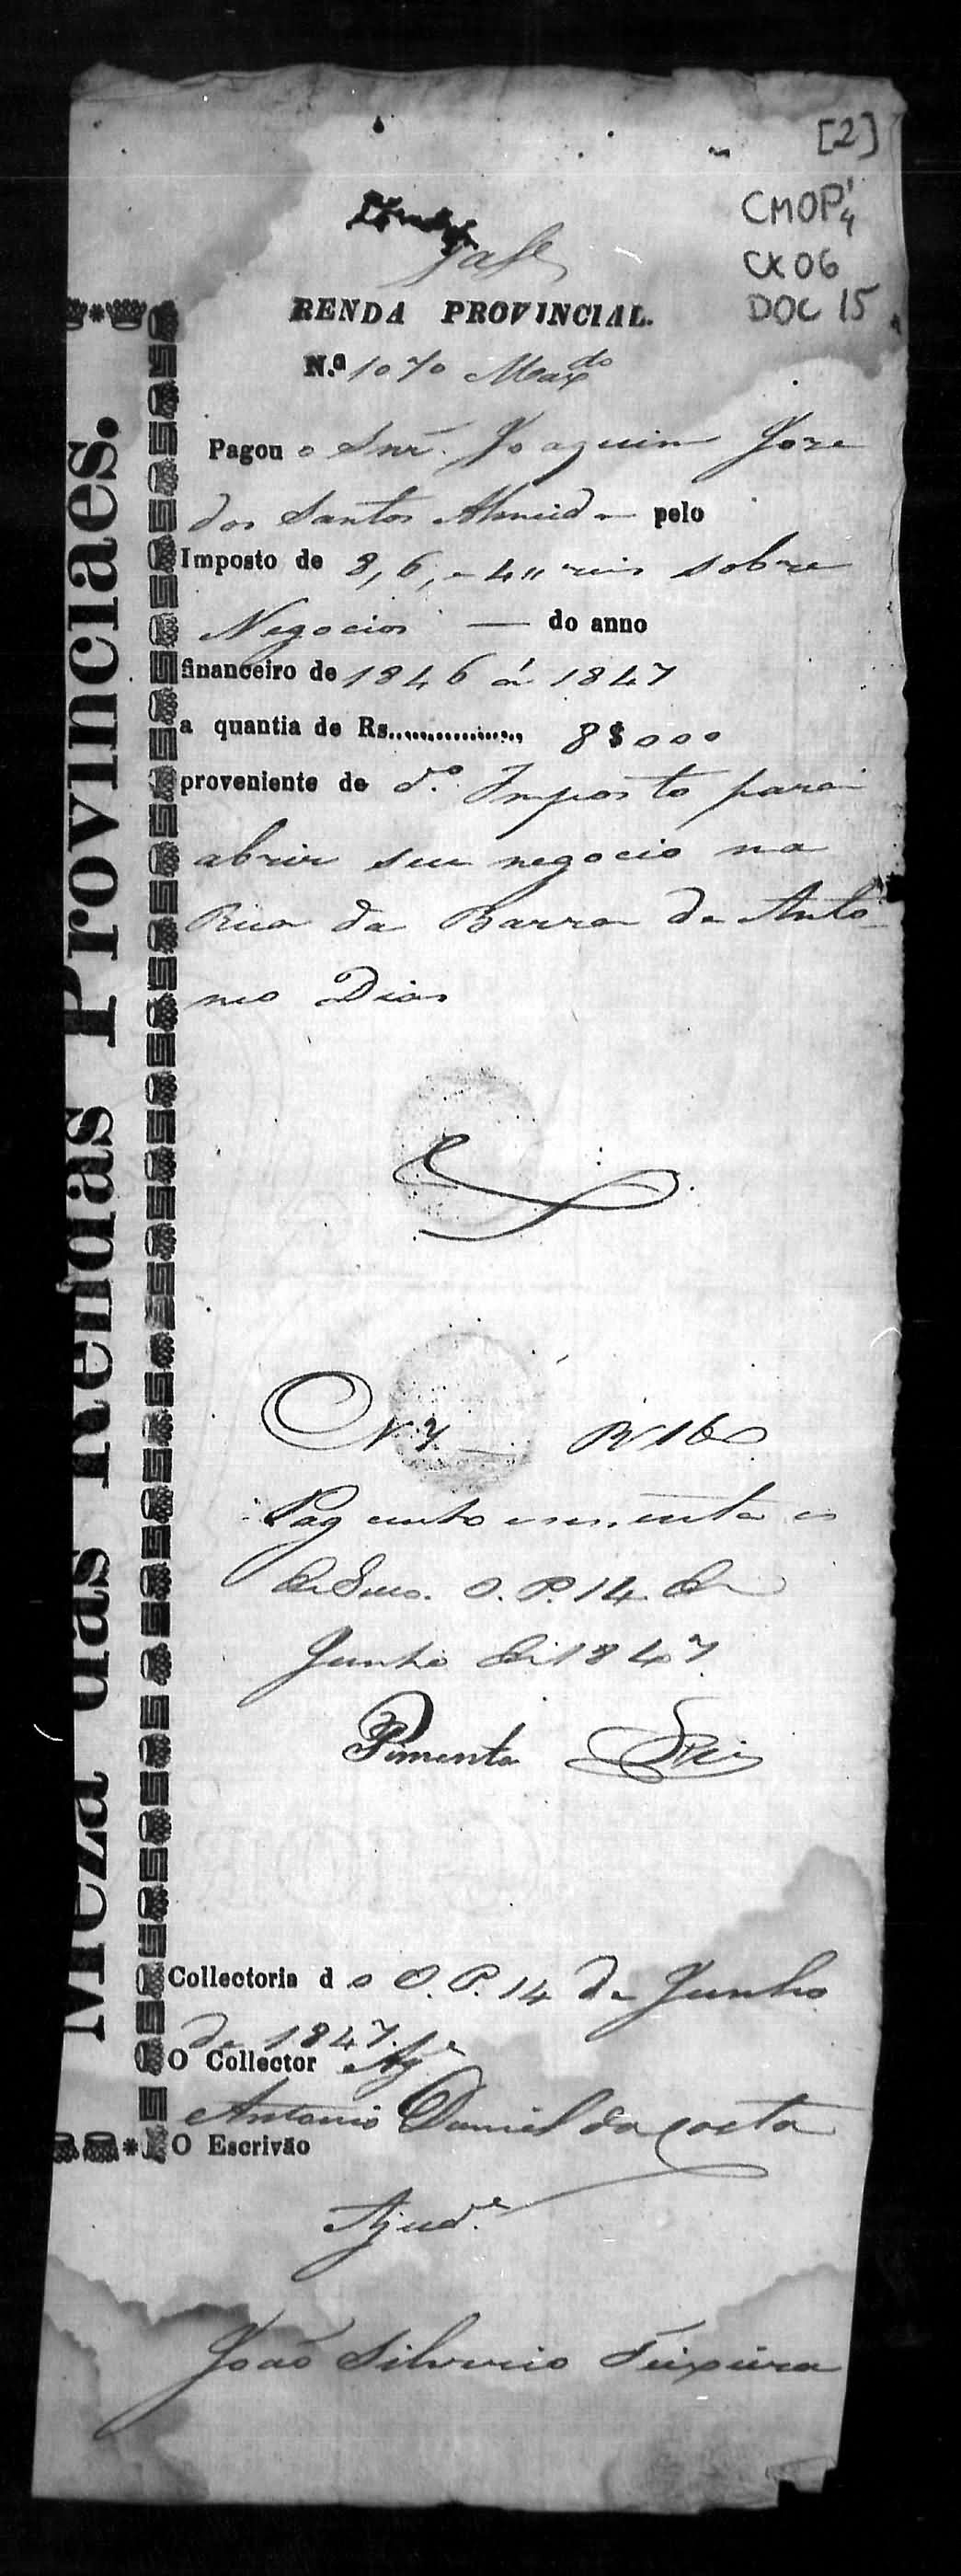 [2]
CMOP'4
CX 06
DOC 15
RENDA PROVINCIAL.
N.º 1070
Pagou o Snr. Joaquim Joze
dos Santos Almeida pelo
Imposto de 8, 6, e 4 " reis sobre
Negocios — do anno
financeiro de 1846 á 1847
a quantia de Rs................. 8$000
proveniente de d.º Imposto para
abrir seu negocio na
Rua da Barra de Anto-
nio Dias
N 7 — R 160
Pag cento e sessenta es
de Sello. O. P. 14 de
Junho de 1847
Pimenta
Collectoria d o O. P. 14 de Junho
de 1847.
O Collector Aj.e
Antonio Daniel da Costa
O Escrivão
Ajud.e
João Silverio Teixeira
Meza das Rendas Provinciaes.